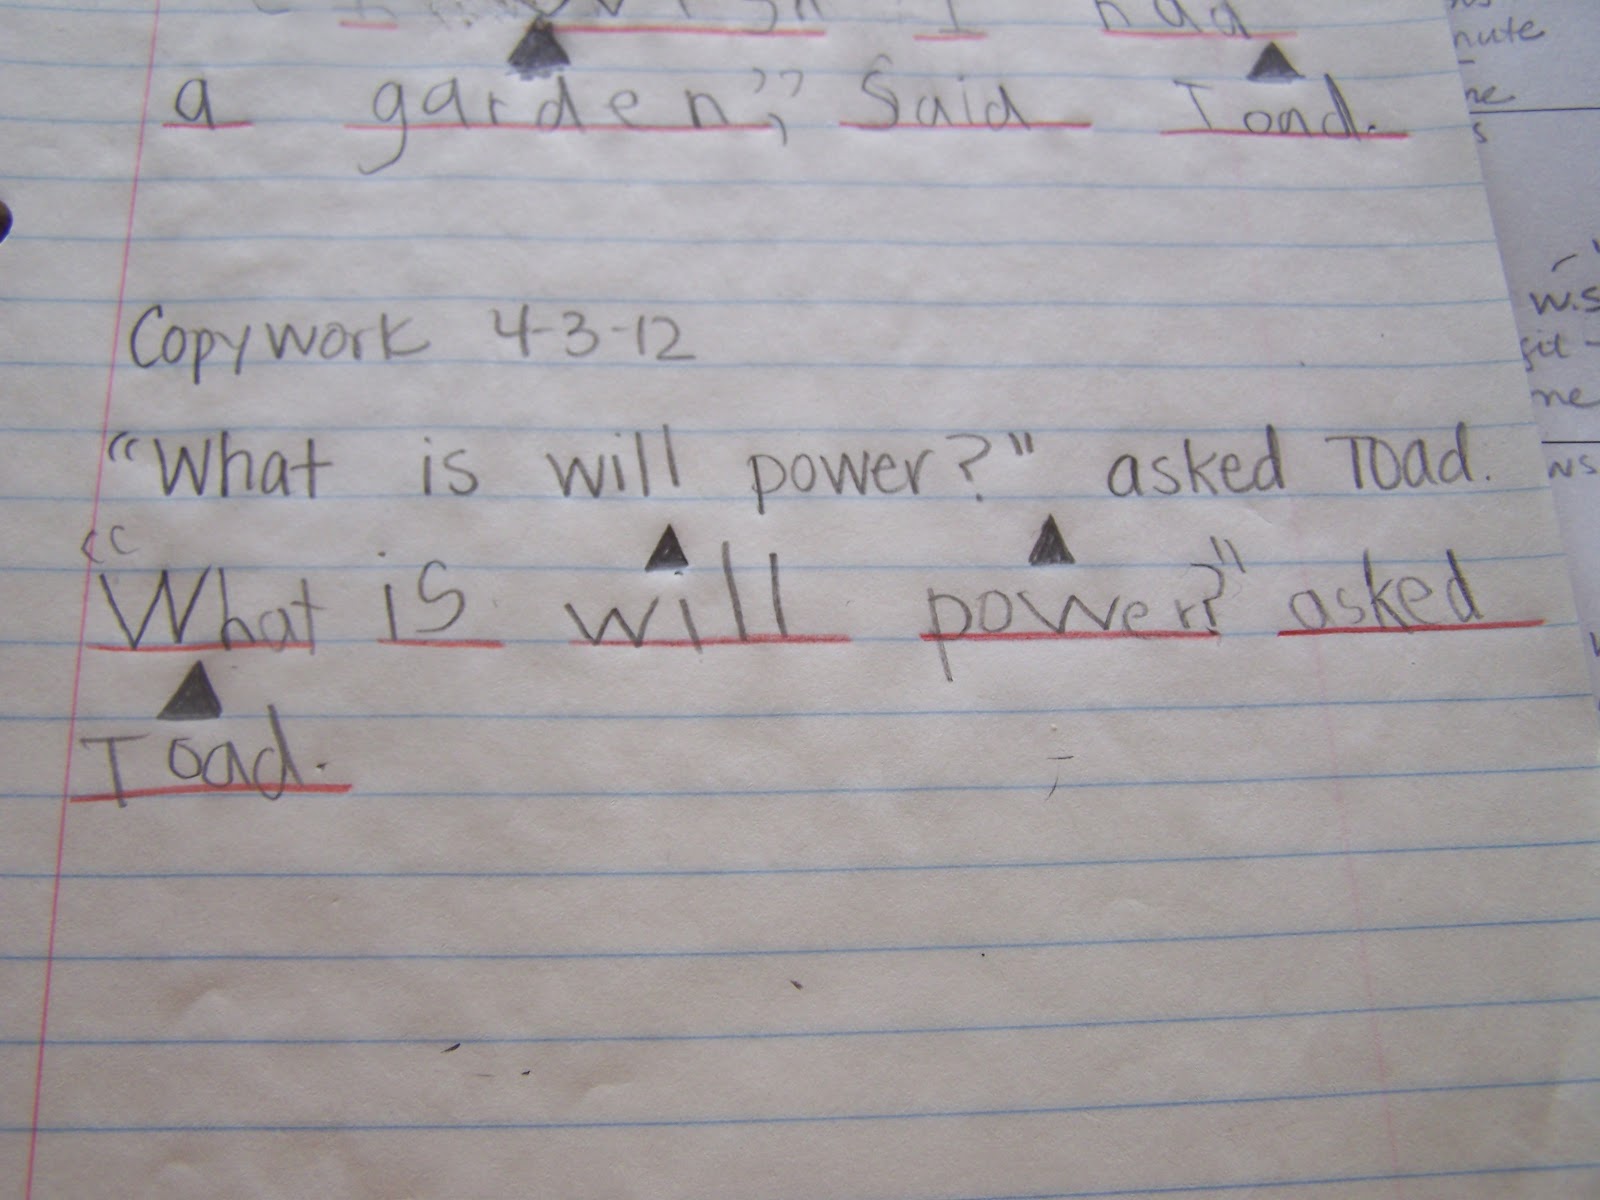 I had
a garden," Said Toad.
Copywork 4-3-12
"What is will power?" asked Toad.
"What is will power?" asked
Toad.
nute
w.s
me
ws